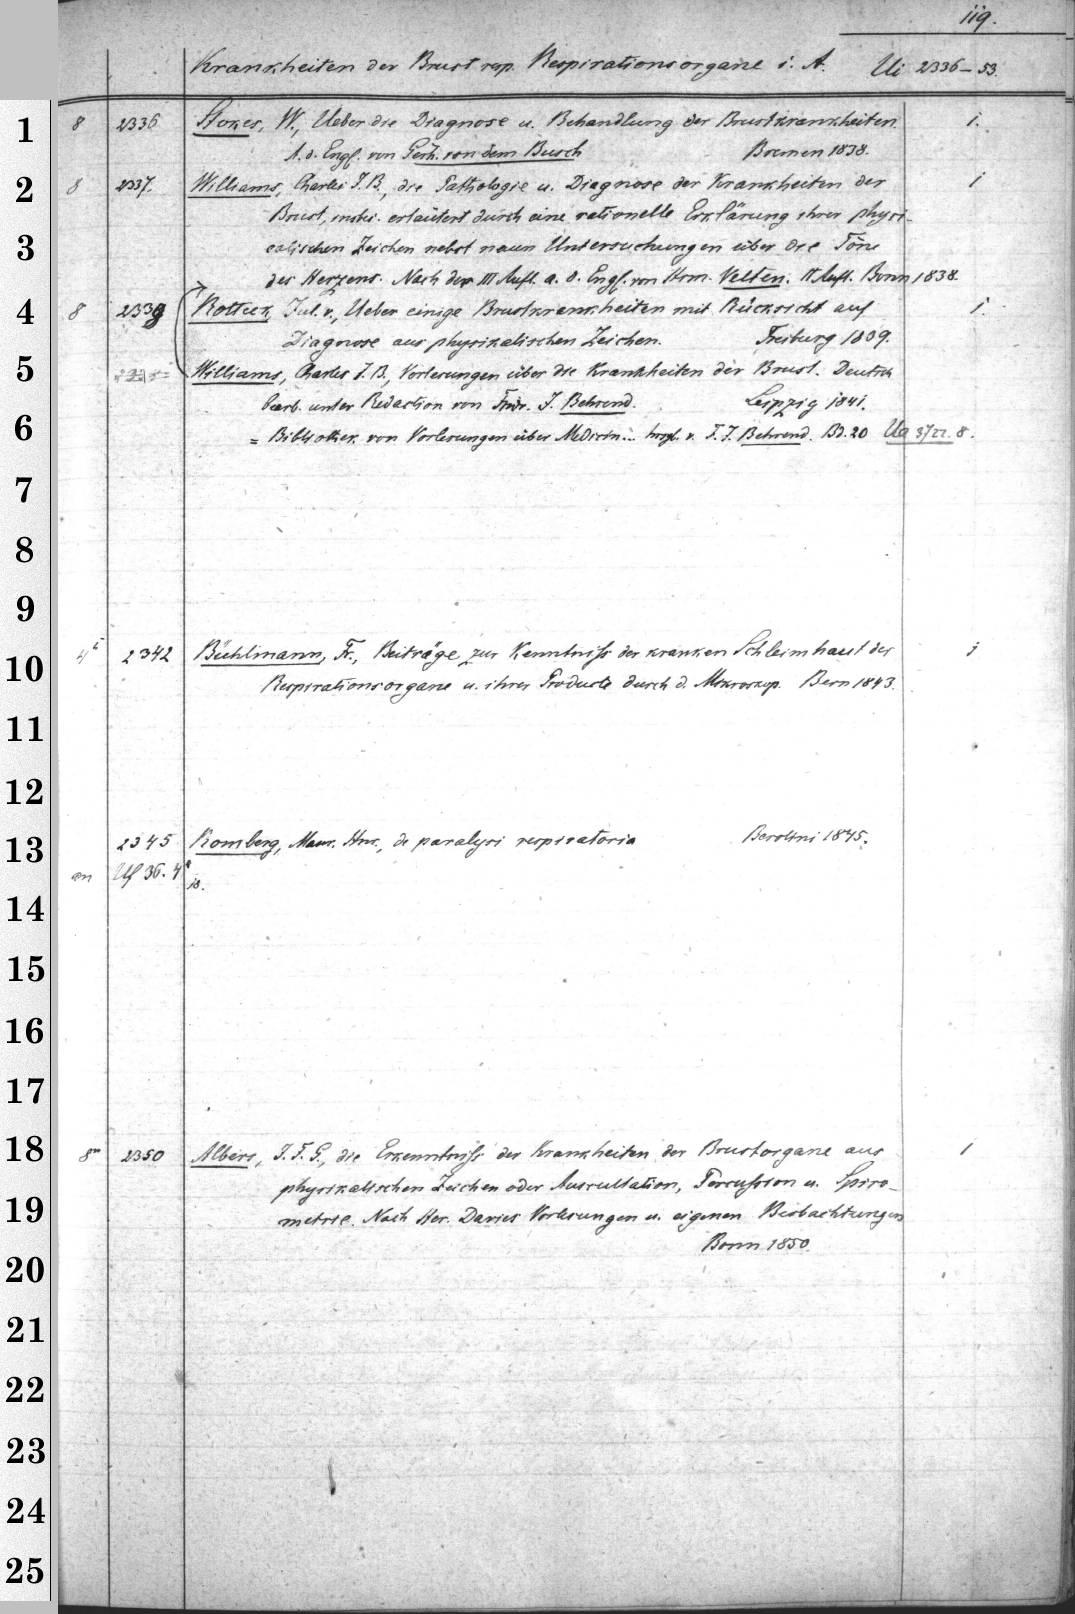 119.
Krankheiten der Brust resp. Respirationsorgane i. A. Ui 2336–53.
1 8 2336 Stokes, W., Ueber die Diagnose u. Behandlung der Brustkrankheiten. 1.
A. d. Engl. von Gerh. von dem Busch Bremen 1838.
2 8 2337. Williams, Charles J. B., die Pathologie u. Diagnose der Krankheiten der 1
Brust, erläutert durch eine rationelle Erklärung ihrer physi-
3 calischen Zeichen nebst neuen Untersuchungen über die Töne
des Herzens. Nach der III Aufl. a. d. Engl. von Herm. Velten. II Aufl. Bonn 1838.
4 8 2339 Rotteck, Jul. v., Ueber einige Brustkrankheiten mit Rücksicht auf 1.
Diagnose aus physikalischen Zeichen. Freiburg 1839.
5 Williams, Charles J. B., Vorlesungen über die Krankheiten der Brust. Deutsch
bearb. unter Redaction von Fridr. J. Behrend. Leipzig 1841.
6 = Bibliothek von Vorlesungen über Medicin... hrsg. v. F. J. Behrend. Bd. 20 Ua 3722. 8.
7
8
9
10 4° 2342 Bühlmann, Fr., Beiträge zur Kenntniss der kranken Schleimhaut der 1
Respirationsorgane u. ihrer Producte durch d. Mikroskop. Bern 1843.
11
12
13 2345 Romberg, Maur. Hnr., de paralysi respiratoria Berolini 1845.
an Uf 36. 4°
14
15
16
17
18 8° 2350 Albers, J. F. G., die Erkenntniss der Krankheiten der Brustorgane aus 1
physikalischen Zeichen oder Auscultation, Percussion u. Spiro-
19 metrie. Nach Her. Davies Vorlesungen u. eigenen Beobachtungen
Bonn 1850.
20
21
22
23
24
25